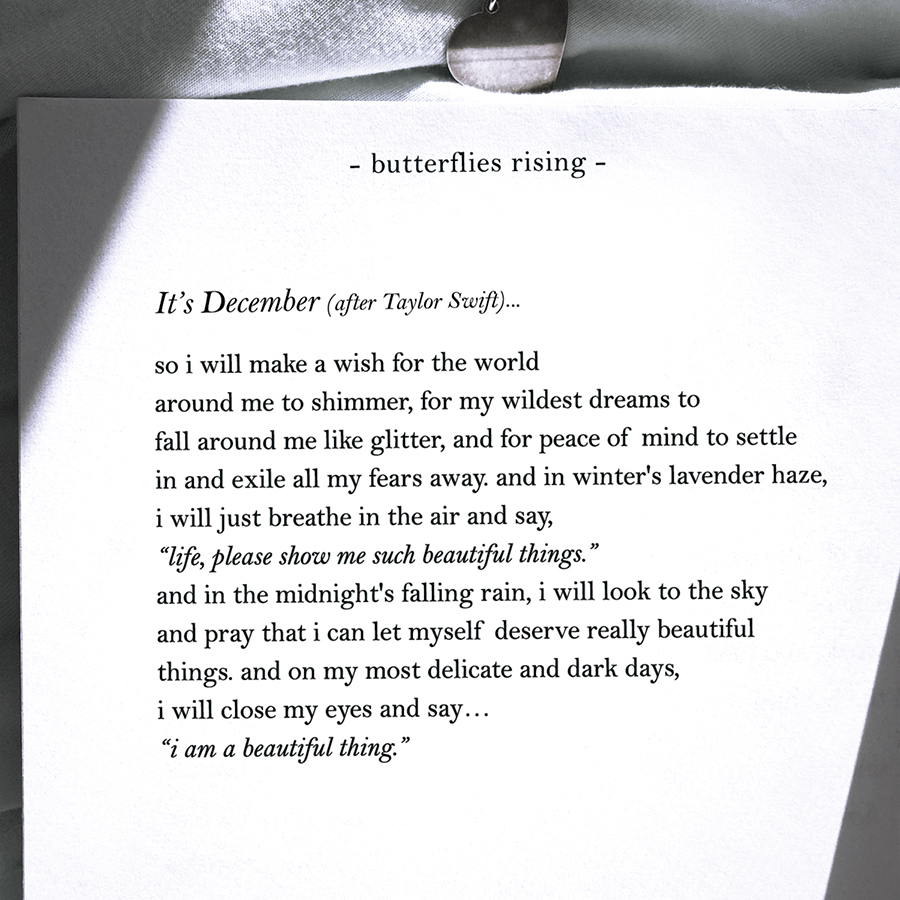 - butterflies rising -
It’s December (after Taylor Swift)...
so i will make a wish for the world
around me to shimmer, for my wildest dreams to
fall around me like glitter, and for peace of mind to settle
in and exile all my fears away. and in winter's lavender haze,
i will just breathe in the air and say,
“life, please show me such beautiful things.”
and in the midnight's falling rain, i will look to the sky
and pray that i can let myself deserve really beautiful
things. and on my most delicate and dark days,
i will close my eyes and say…
“i am a beautiful thing.”